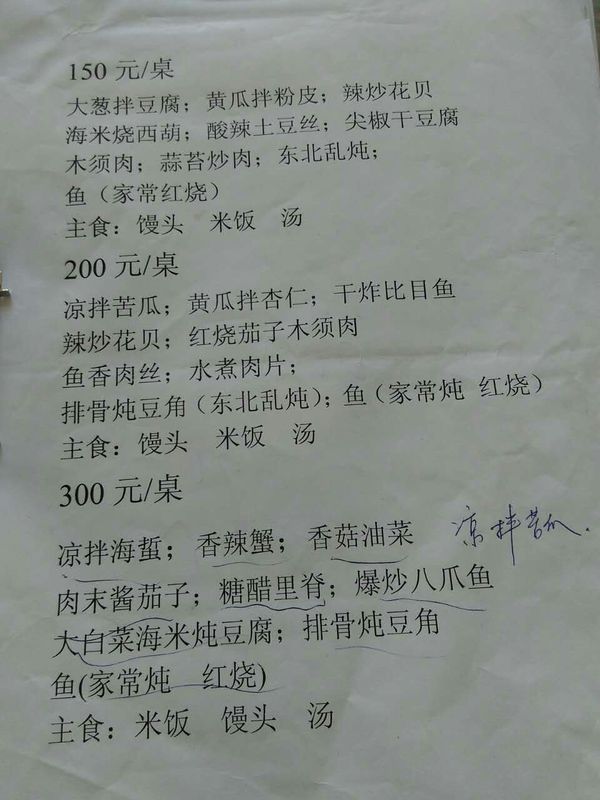 150 元/桌
大葱拌豆腐；黄瓜拌粉皮；辣炒花贝
海米烧西葫；酸辣土豆丝；尖椒干豆腐
木须肉；蒜苔炒肉；东北乱炖；
鱼（家常红烧）
主食：馒头 米饭 汤
200 元/桌
凉拌苦瓜；黄瓜拌杏仁；干炸比目鱼
辣炒花贝；红烧茄子木须肉
鱼香肉丝；水煮肉片；
排骨炖豆角（东北乱炖）；鱼（家常炖 红烧）
主食：馒头 米饭 汤
300 元/桌
凉拌海蜇；香辣蟹；香菇油菜 凉拌苦瓜.
肉末酱茄子；糖醋里脊；爆炒八爪鱼
大白菜海米炖豆腐；排骨炖豆角
鱼(家常炖 红烧)
主食：米饭 馒头 汤